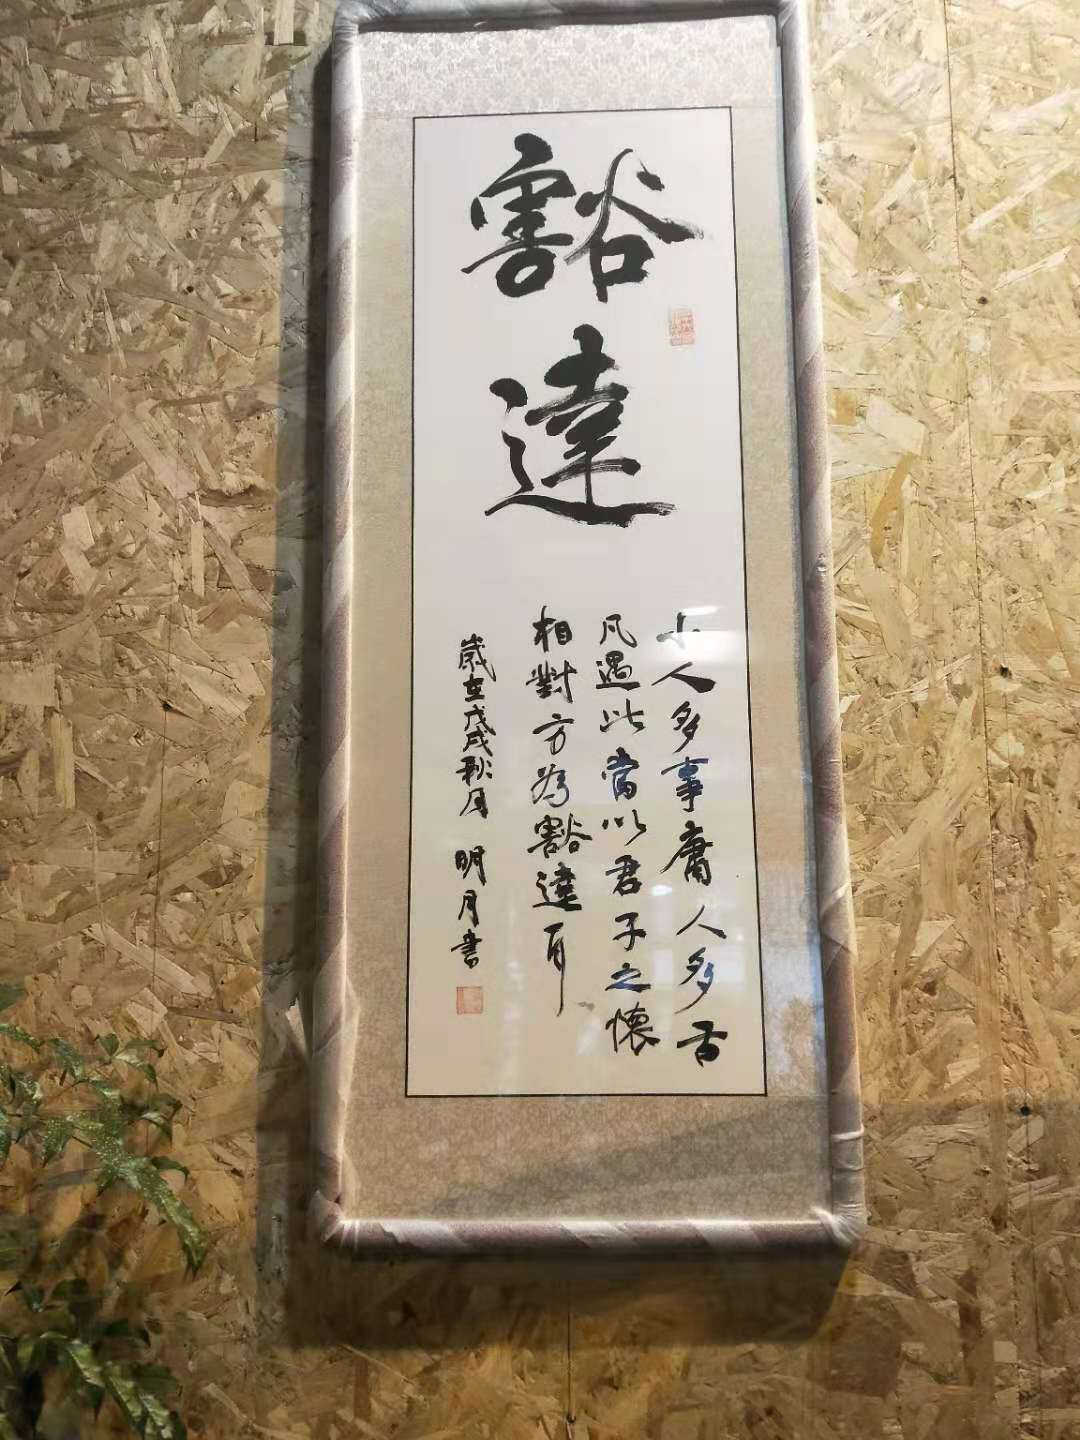 豁達
小人多事庸人多舌
凡遇此當以君子之懷
相對方為豁達耳
歲在戊戌秋月 明月書